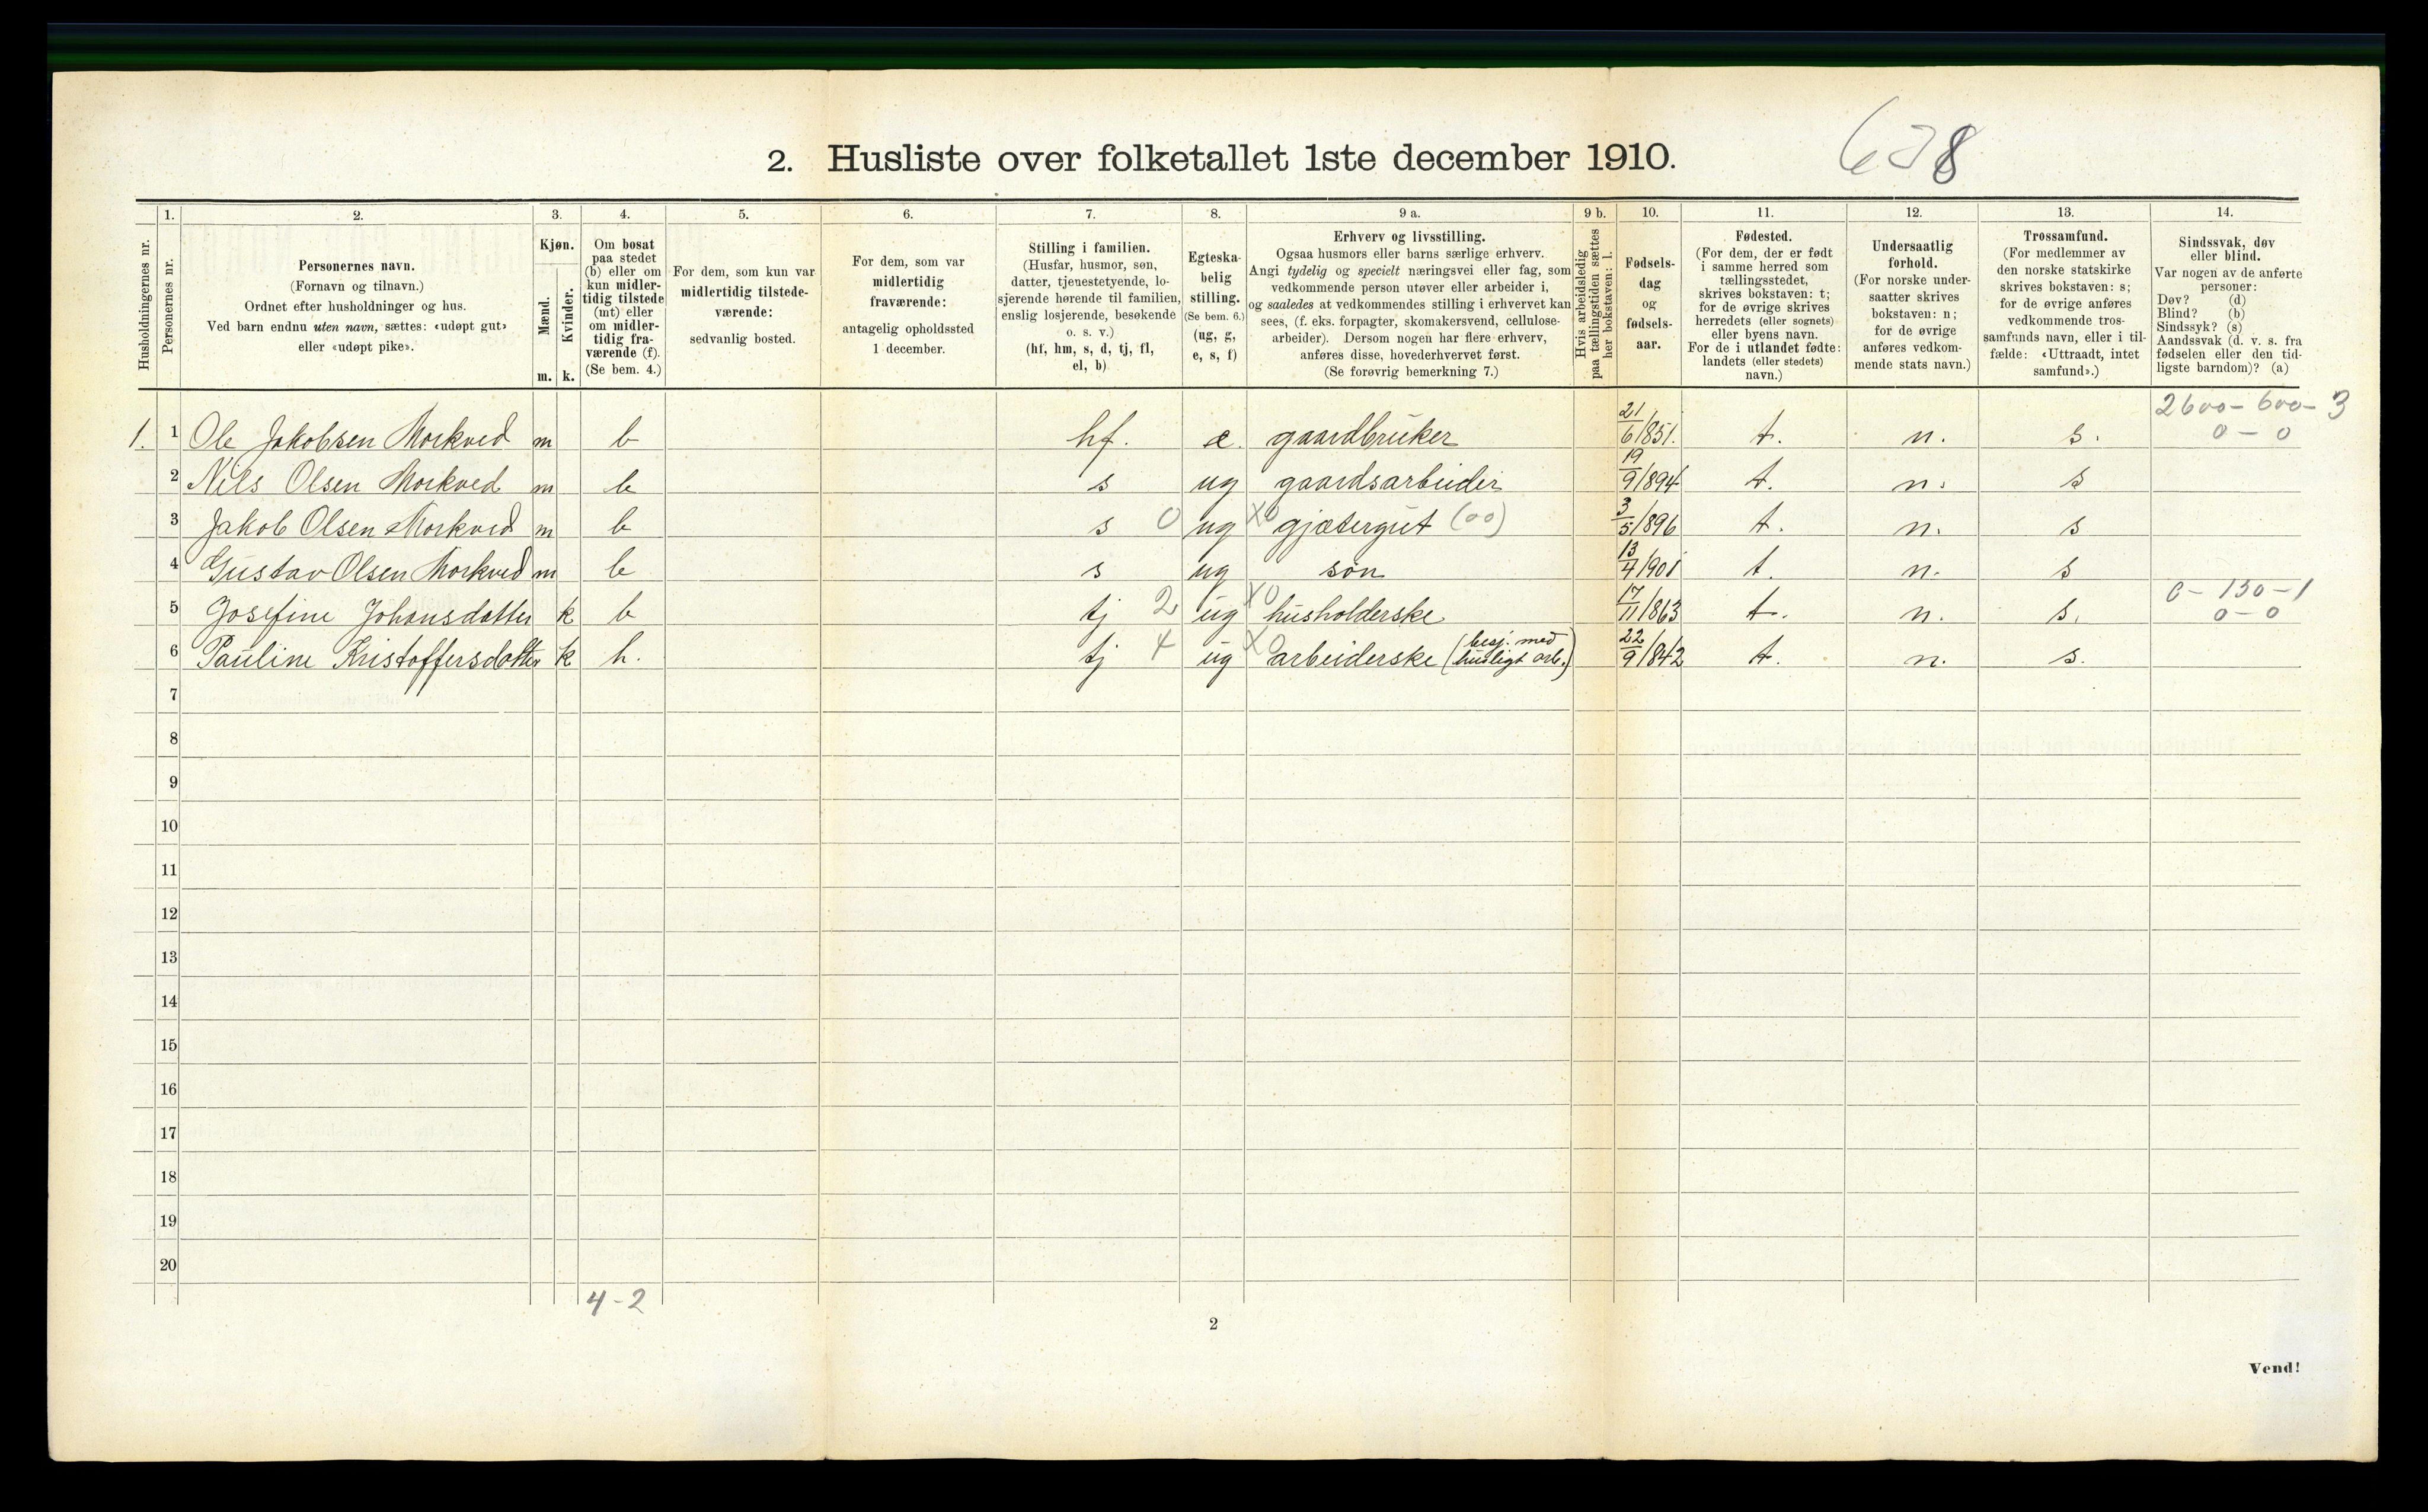 638
2. Husliste over folketallet 1ste december 1910.
Husholdningernes nr.
1.
Personernes nr.
2.
Personernes navn.
(Fornavn og tilnavn.)
Ordnet efter husholdninger og hus.
Ved barn endnu uten navn, sættes: «udøpt gut»
eller «udøpt pike».
3.
Kjøn.
Mænd.
Kvinder.
m. k.
4.
Om bosat
paa stedet
(b) eller om
kun midler-
tidig tilstede
(mt) eller
om midler-
tidig fra-
værende (f).
(Se bem. 4.)
5.
For dem, som kun var
midlertidig tilstede-
værende:
sedvanlig bosted.
6.
For dem, som var
midlertidig
fraværende:
antagelig opholdssted
1 december.
7.
Stilling i familien.
(Husfar, husmor, søn,
datter, tjenestetyende, lo-
sjerende hørende til familien,
enslig losjerende, besøkende
o. s. v.)
(hf, hm, s, d, tj, fl,
el, b)
8.
Egteska-
belig
stilling.
(Se bem. 6.)
(ug, g,
e, s, f)
9 a.
Erhverv og livsstilling.
Ogsaa husmors eller barns særlige erhverv.
Angi tydelig og specielt næringsvei eller fag, som
vedkommende person utøver eller arbeider i,
og saaledes at vedkommendes stilling i erhvervet kan
sees, (f. eks. forpagter, skomakersvend, cellulose-
arbeider). Dersom nogen har flere erhverv,
anføres disse, hovederhvervet først.
(Se forøvrig bemerkning 7.)
9 b.
Hvis arbeidsledig
paa tællingstiden sættes
her bokstaven: l.
10.
Fødsels-
dag
og
fødsels-
aar.
11.
Fødested.
(For dem, der er født
i samme herred som
tællingsstedet,
skrives bokstaven: t;
for de øvrige skrives
herredets (eller sognets)
eller byens navn.
For de i utlandet fødte:
landets (eller stedets)
navn.)
12.
Undersaatlig
forhold.
(For norske under-
saatter skrives
bokstaven: n;
for de øvrige
anføres vedkom-
mende stats navn.)
13.
Trossamfund.
(For medlemmer av
den norske statskirke
skrives bokstaven: s;
for de øvrige anføres
vedkommende tros-
samfunds navn, eller i til-
fælde: «Uttraadt, intet
samfund».)
14.
Sindssvak, døv
eller blind.
Var nogen av de anførte
personer:
Døv? (d)
Blind? (b)
Sindssyk? (s)
Aandssvak (d. v. s. fra
fødselen eller den tid-
ligste barndom)? (a)
2600 - 600 - 3
1. 1 Ole Jakobsen Morkved m b hf. e. gaardbruker 21/6/851. t. n. s. 0 - 0
2 Nils Olsen Morkved m b s ug gaardsarbeider 19/9/894 t. n. s
3 Jakob Olsen Morkved m b s 0 ug X0 gjætergut (00) 3/5/896 t. n. s
4 Gustav Olsen Morkved m b s ug søn 13/4/901 t. n. s
0 - 130 - 1
5 Josefine Johansdatter k b tj 2 ug X0 husholderske 17/11/863 t. n. s. 0 - 0
6 Pauline Kristoffersdatter k b. tj 4 ug X0 arbeiderske (besj. med husligt arb.) 22/9/842 t. n. s.
7
8
9
10
11
12
13
14
15
16
17
18
19
20
4 - 2
2
Vend!